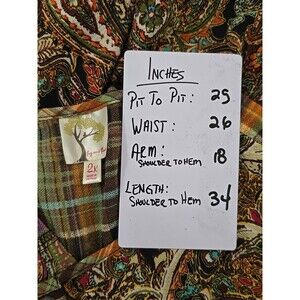 INCHES
PIT TO PIT: 25
WAIST: 26
ARM: 18
SHOULDER TO HEM
LENGTH: 34
SHOULDER TO HEM
2X